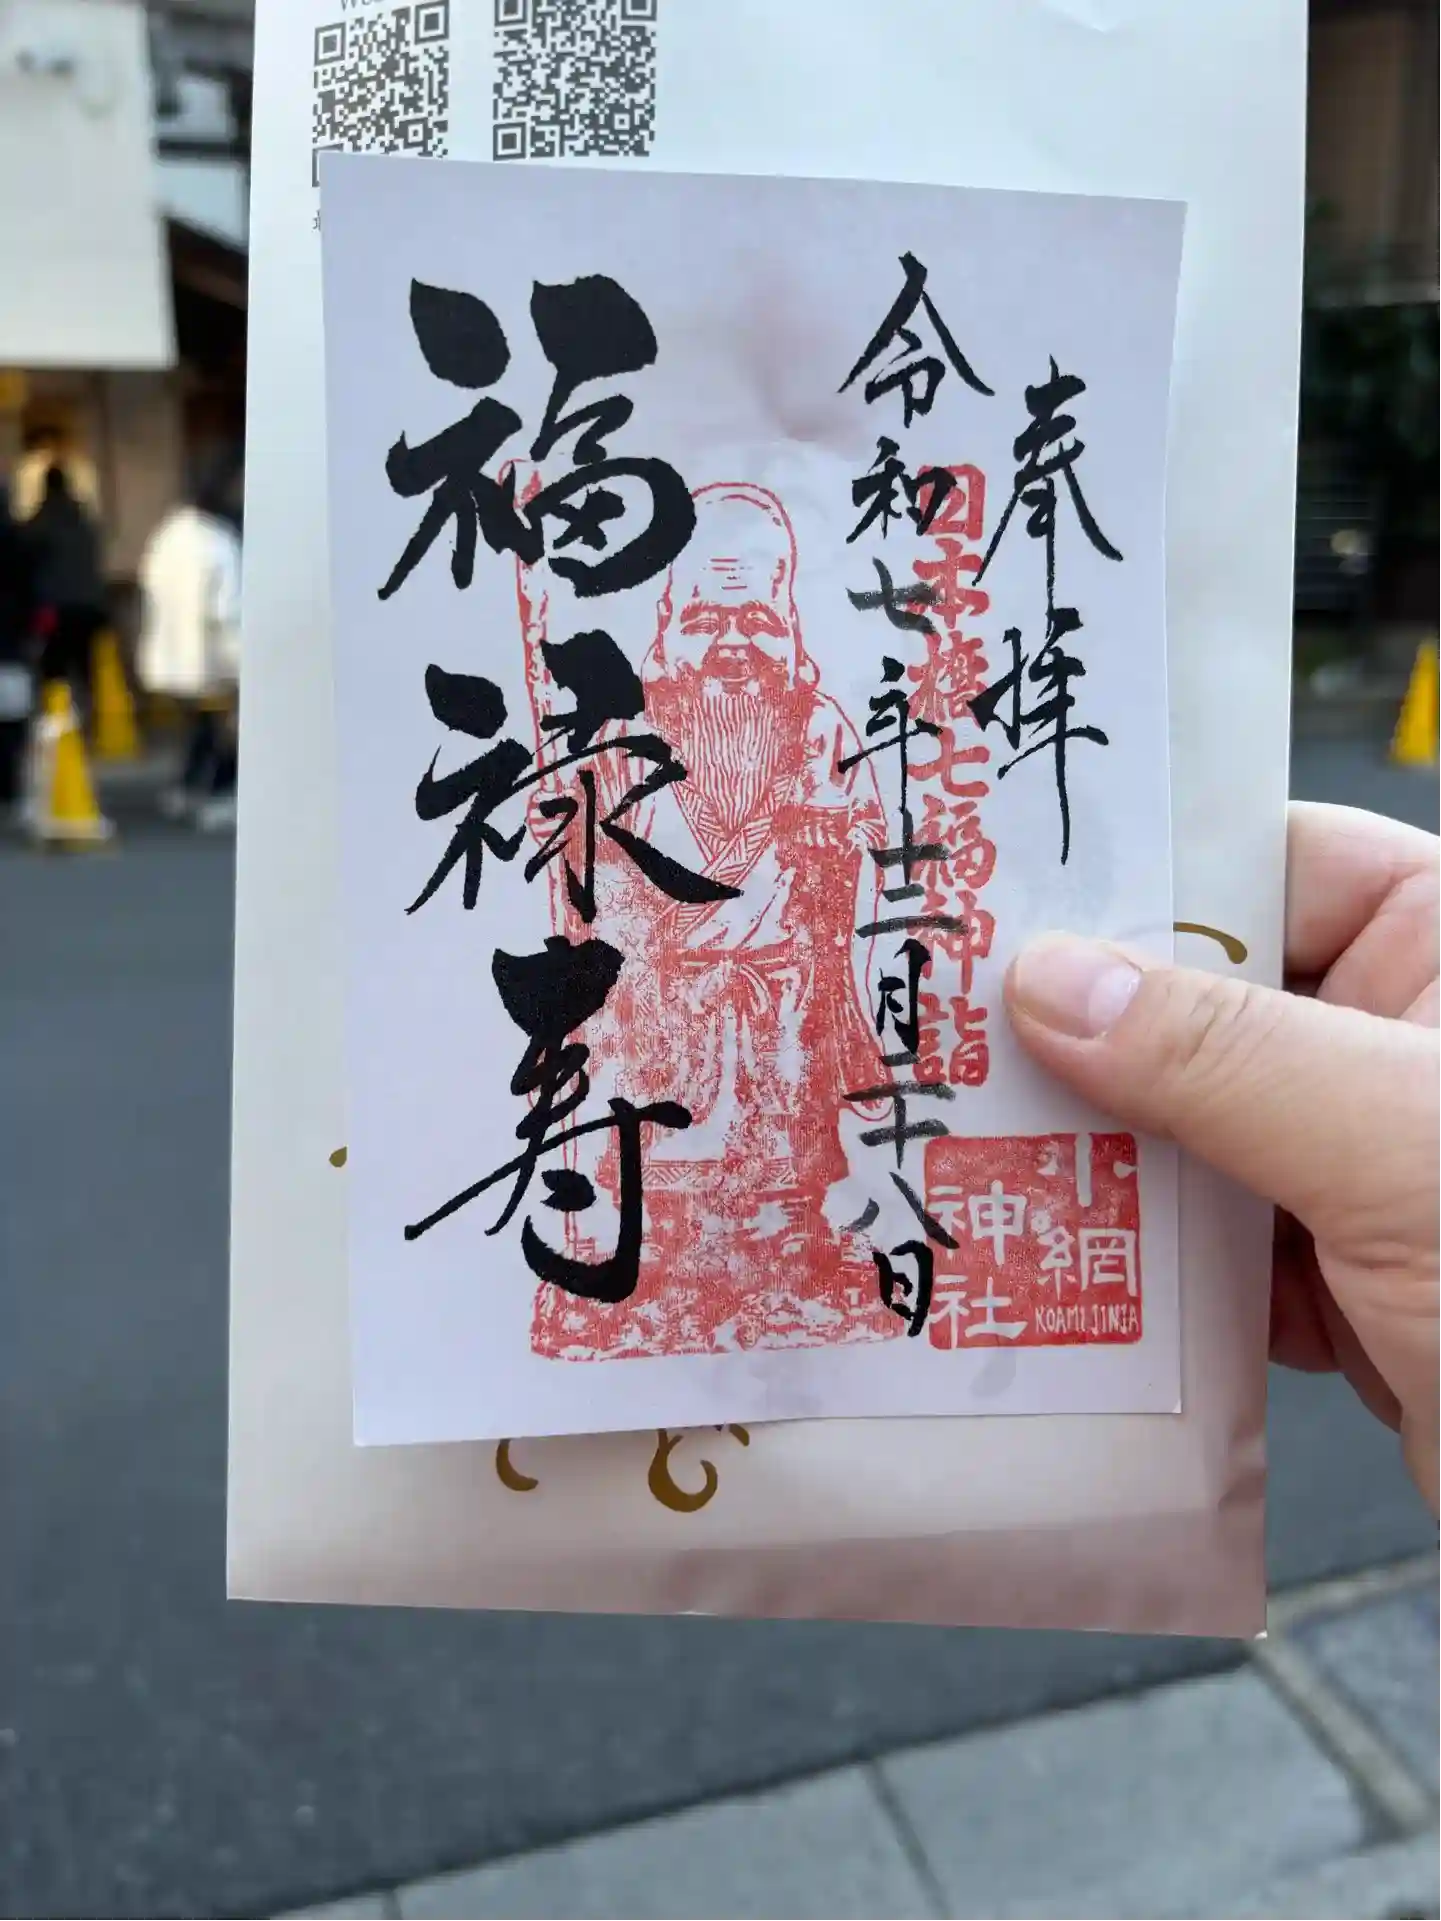 奉拝
日本橋七福神詣
令和七年十二月二十八日
福禄寿
小網
神社
KOAMI JINJA